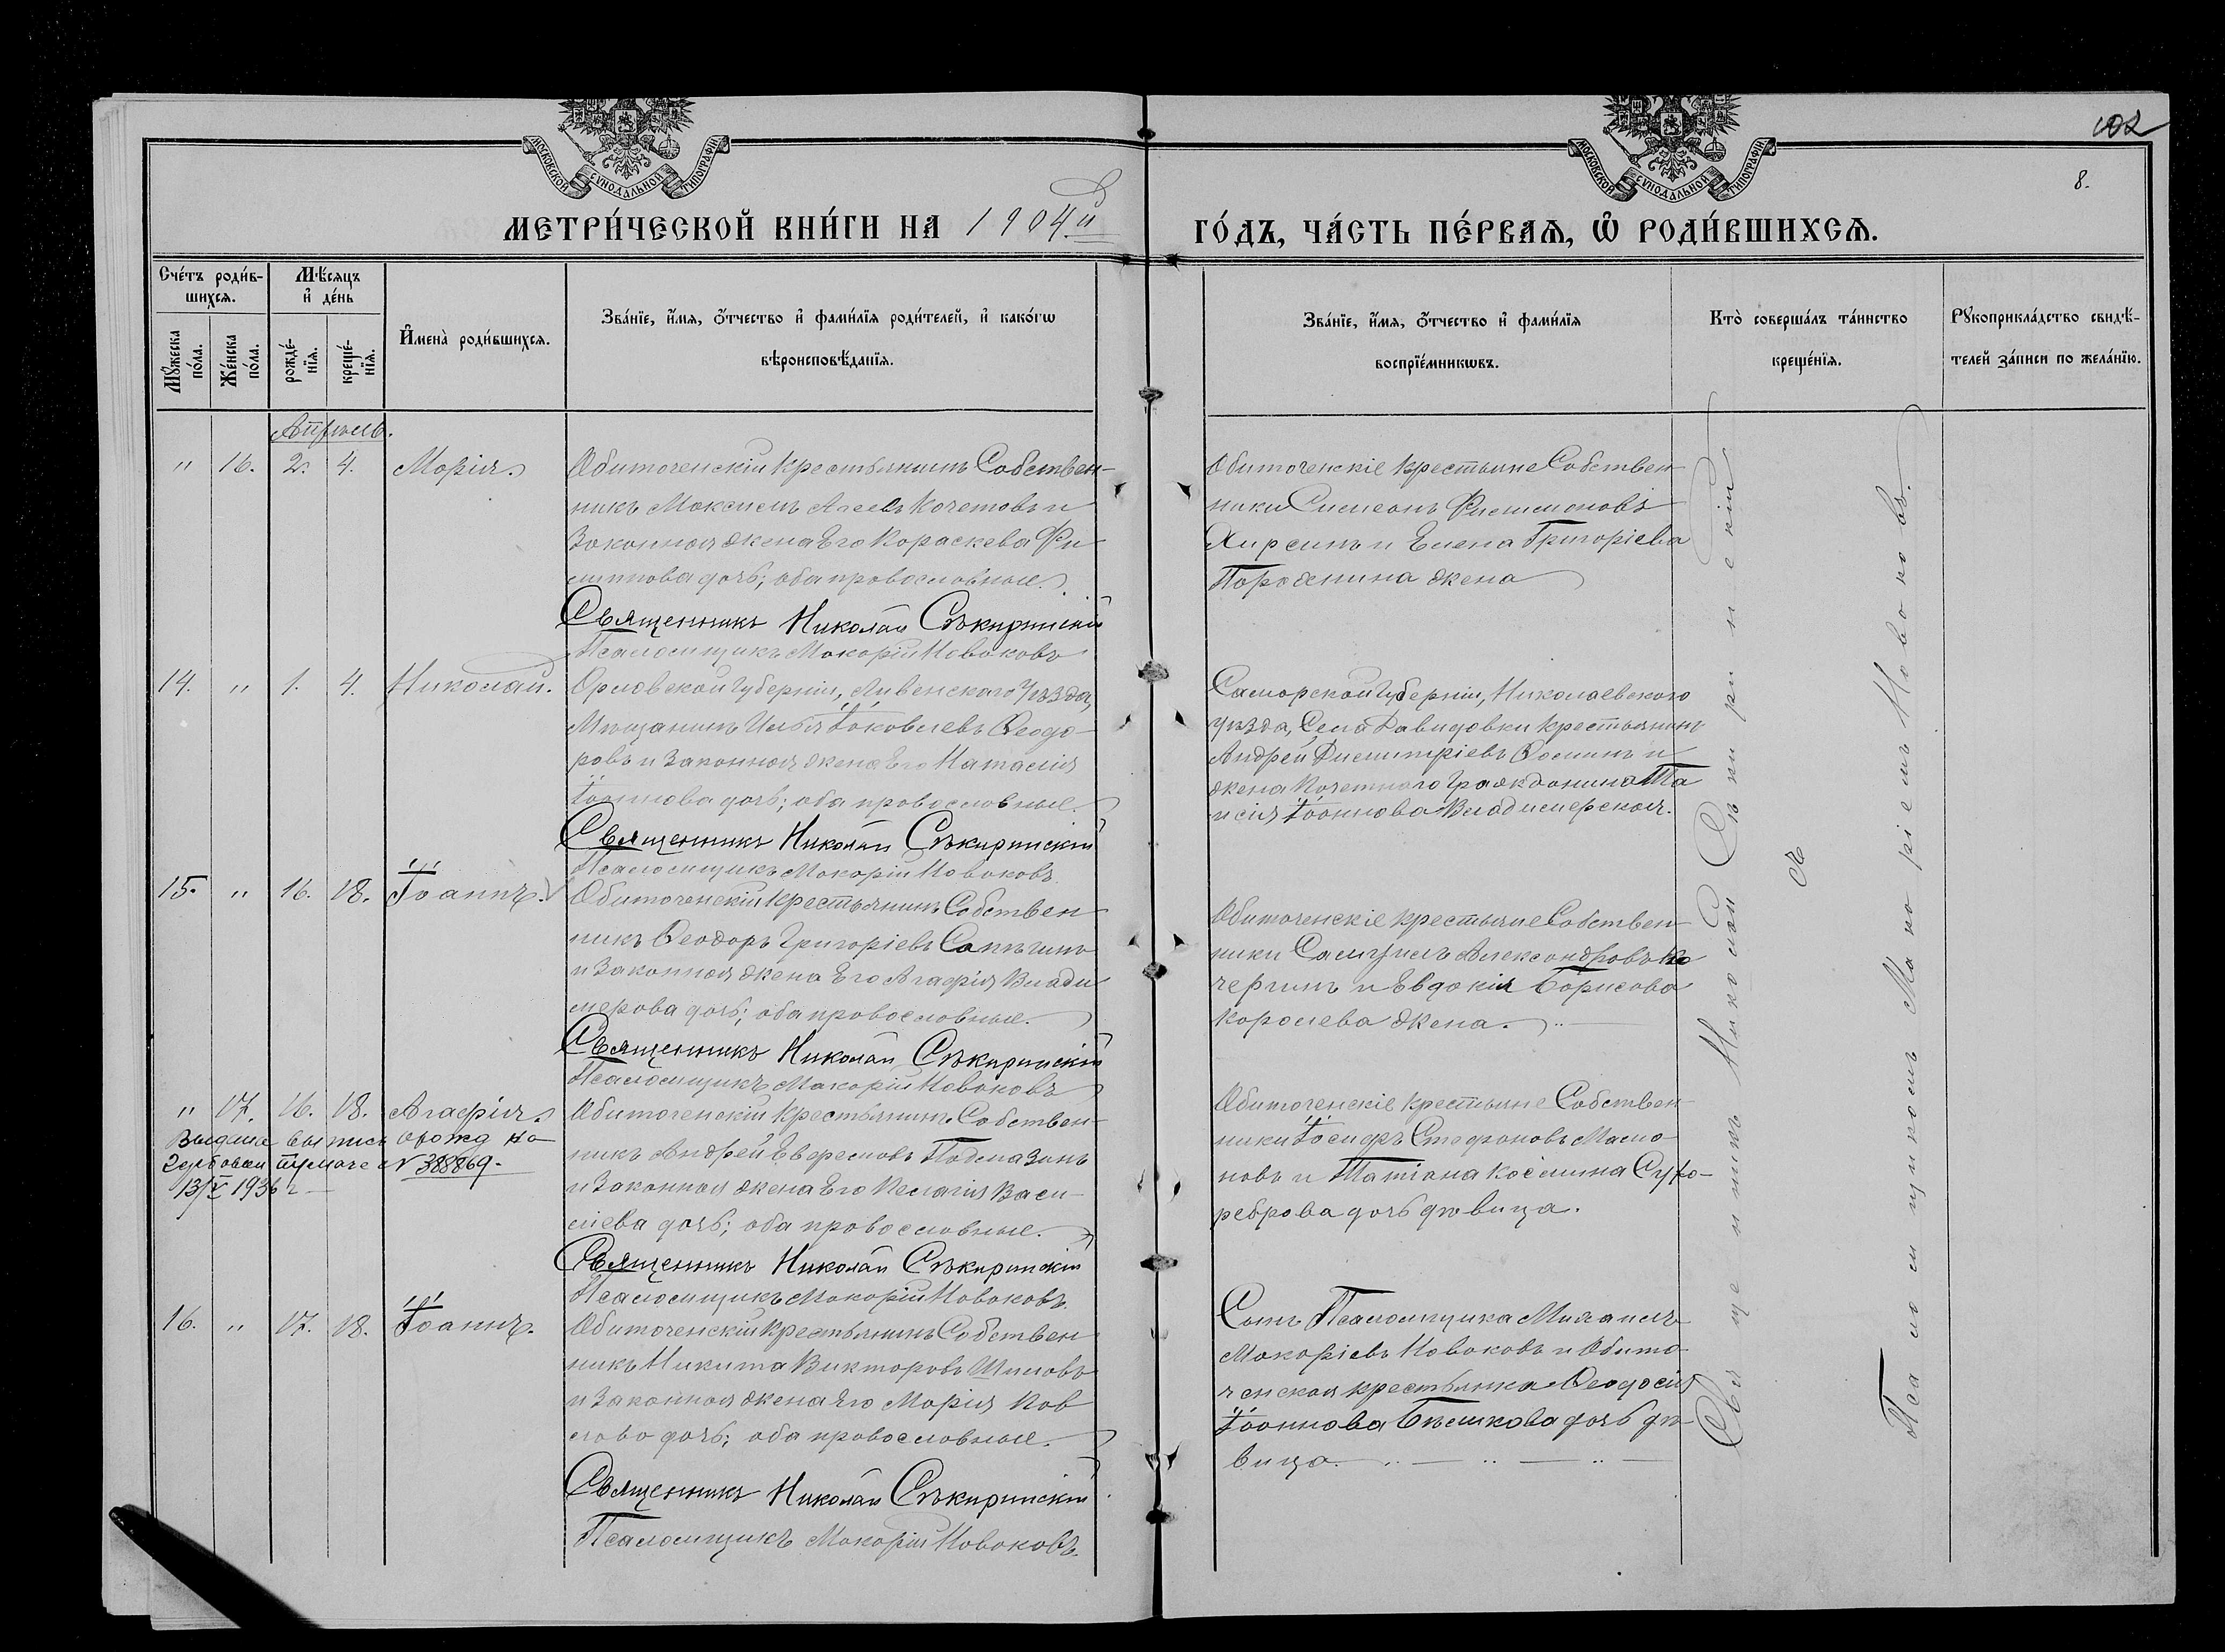 102
8.
МОСКОВСКОЙ СѴНОДАЛЬНОЙ ТИПОГРАФІИ
МОСКОВСКОЙ СѴНОДАЛЬНОЙ ТИПОГРАФІИ
МЕТРИ́ЧЕСКОЙ КНИ́ГИ НА 1904й
ГО́ДЪ, ЧА́СТЬ ПЕ́РВАѦ, Ѡ҆ РОДИ́ВШИХСѦ.
Сче́тъ роди́в-
шихсѧ.
Мꙋ́жеска по́ла.
Же́нска по́ла.
Мѣ́сѧцъ
и҆ де́нь
рожде́-
нїѧ.
креще́-
нїѧ.
И҆мена̀ роди́вшихсѧ.
Зва́нїе, и҆́мѧ, ѻ҆́тчество и҆ фами́лїѧ роди́телей, и҆ како́гѡ
вѣроисповѣ́данїѧ.
Зва́нїе, и҆́мѧ, ѻ҆́тчество и҆ фами́лїѧ
воспрїе́мникѡвъ.
Кто̀ соверша́лъ та́инство
креще́нїѧ.
Рꙋкоприкла́дство свидѣ́-
телей за́писи по жела́нїю.
Апрель.
" 16. 2. 4. Марія.
Обиточенскій крестьянинъ Собствен-
никъ Максимъ Кочетовъ и
Законная жена Его Параскева Фи-
липпова дочь; оба православные.
Священникъ Николай Сѣкиринскій
Псаломщикъ Макарій Новаковъ
Обиточенскіе крестьяне Собствен-
ники Симеонъ Филимоновъ
и Елена Григоріева
жена
14. " 1. 4. Николай.
Орловской Губерніи, Ливенскаго Уѣзда,
Мѣщанинъ Илья Іаковлевъ Ѳеодо-
ровъ и Законная жена Его Наталія
Іоаннова дочь; оба православные.
Священникъ Николай Сѣкиринскій
Псаломщикъ Макарій Новаковъ
Самарской Губерніи, Николаевскаго
уѣзда, Села Давидовки крестьянинъ
Андрей Димитріевъ Ѳоминъ и
жена Почетнаго Гражданина Та
исія Іоаннова Владимерская.
15. " 16. 18. Іоаннъ.
Обиточенскій крестьянинъ Собствен-
никъ Ѳеодоръ Григоріевъ Сапѣгинъ
и Законная жена Его Агафія Влади
мерова дочь; оба православные.
Священникъ Николай Сѣкиринскій
Псаломщикъ Макарій Новаковъ
Обиточенскіе крестьяне Собствен-
ники Самуилъ Александровъ Ка
чергинъ и Евдокія Борисова
Королева жена.
" 17. 16. 18. Агафія.
Выдана выпись о рожд на
Гербовой бумаге № 388869.
13/V 1936 г
Обиточенскій крестьянинъ Собствен-
никъ Андрей Евфремовъ Подмазинъ
и Законная жена Его Пелагія Васи-
ліева дочь; оба православные.
Священникъ Николай Сѣкиринскій
Псаломщикъ Макарій Новаковъ
Обиточенскіе крестьяне Собствен-
ники Іосифъ Стефановъ Мама-
новъ и Татіана Косьмина Сухо-
реброва дочь дѣвица.
16. " 17. 18. Іоаннъ.
Обиточенскій крестьянинъ Собствен
никъ Никита Викторовъ Шиловъ
и Законная жена Его Марія Пав
лова дочь; оба православные.
Священникъ Николай Сѣкиринскій
Псаломщикъ Макарій Новаковъ
Сынъ Псаломщика Михаилъ
Макаріевъ Новаковъ и Обито-
ченская крестьянка Ѳеодосія
Іоаннова Бѣликова дочь дѣ-
вица.
Священникъ Николай Сѣкиринскій
съ
Псаломщикомъ Макаріемъ Новаковъ.